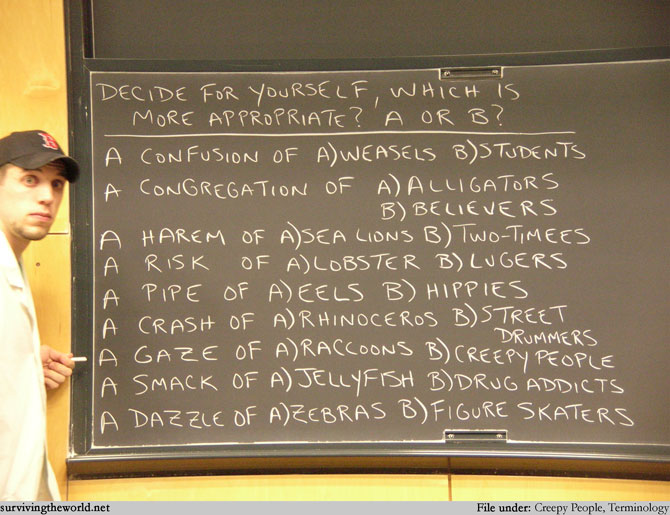 DECIDE FOR YOURSELF, WHICH IS
MORE APPROPRIATE? A OR B?
A CONFUSION OF A)WEASELS B)STUDENTS
A CONGREGATION OF A)ALLIGATORS
B)BELIEVERS
A HAREM OF A)SEA LIONS B)TWO-TIMEES
A RISK OF A)LOBSTER B)LUGERS
A PIPE OF A)EELS B)HIPPIES
A CRASH OF A)RHINOCEROS B)STREET
DRUMMERS
A GAZE OF A)RACCOONS B)CREEPY PEOPLE
A SMACK OF A)JELLYFISH B)DRUG ADDICTS
A DAZZLE OF A)ZEBRAS B)FIGURE SKATERS
B
survivingtheworld.net File under: Creepy People, Terminology